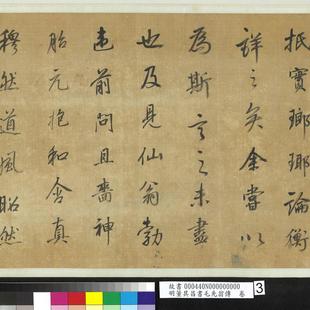 抵寶瑯琊論衡
詳之矣余嘗以
為斯言之未盡
也及見仙翁勃
逮前問且嗇神
胎元抱和含真
穆然道風昭然
故書 000440N000000000
明董其昌書毛先翁傳 卷
3